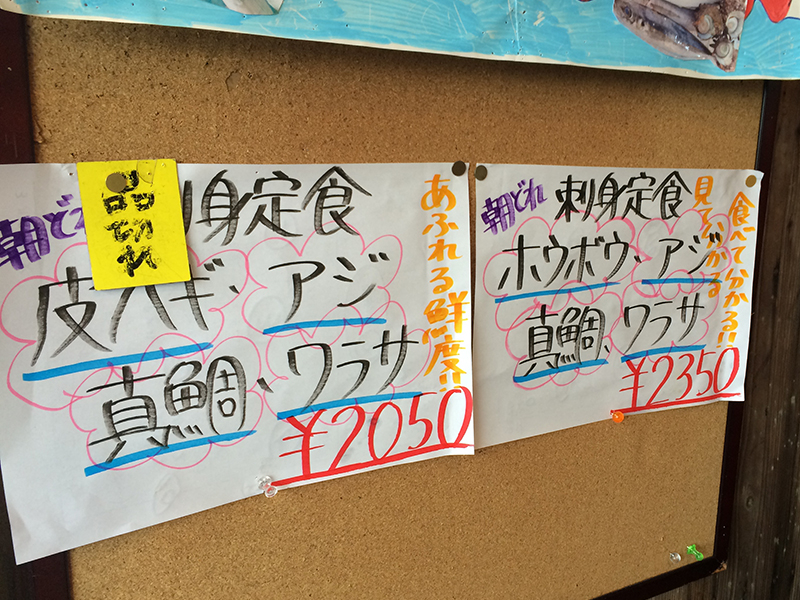 朝どれ
品切れ
刺身定食
皮ハギ、アジ
真鯛、ワラサ
¥2050
あふれる鮮度!!
朝どれ
刺身定食
ホウボウ、アジ
真鯛、ワラサ
¥2350
食べて分かる!!
見て分かる